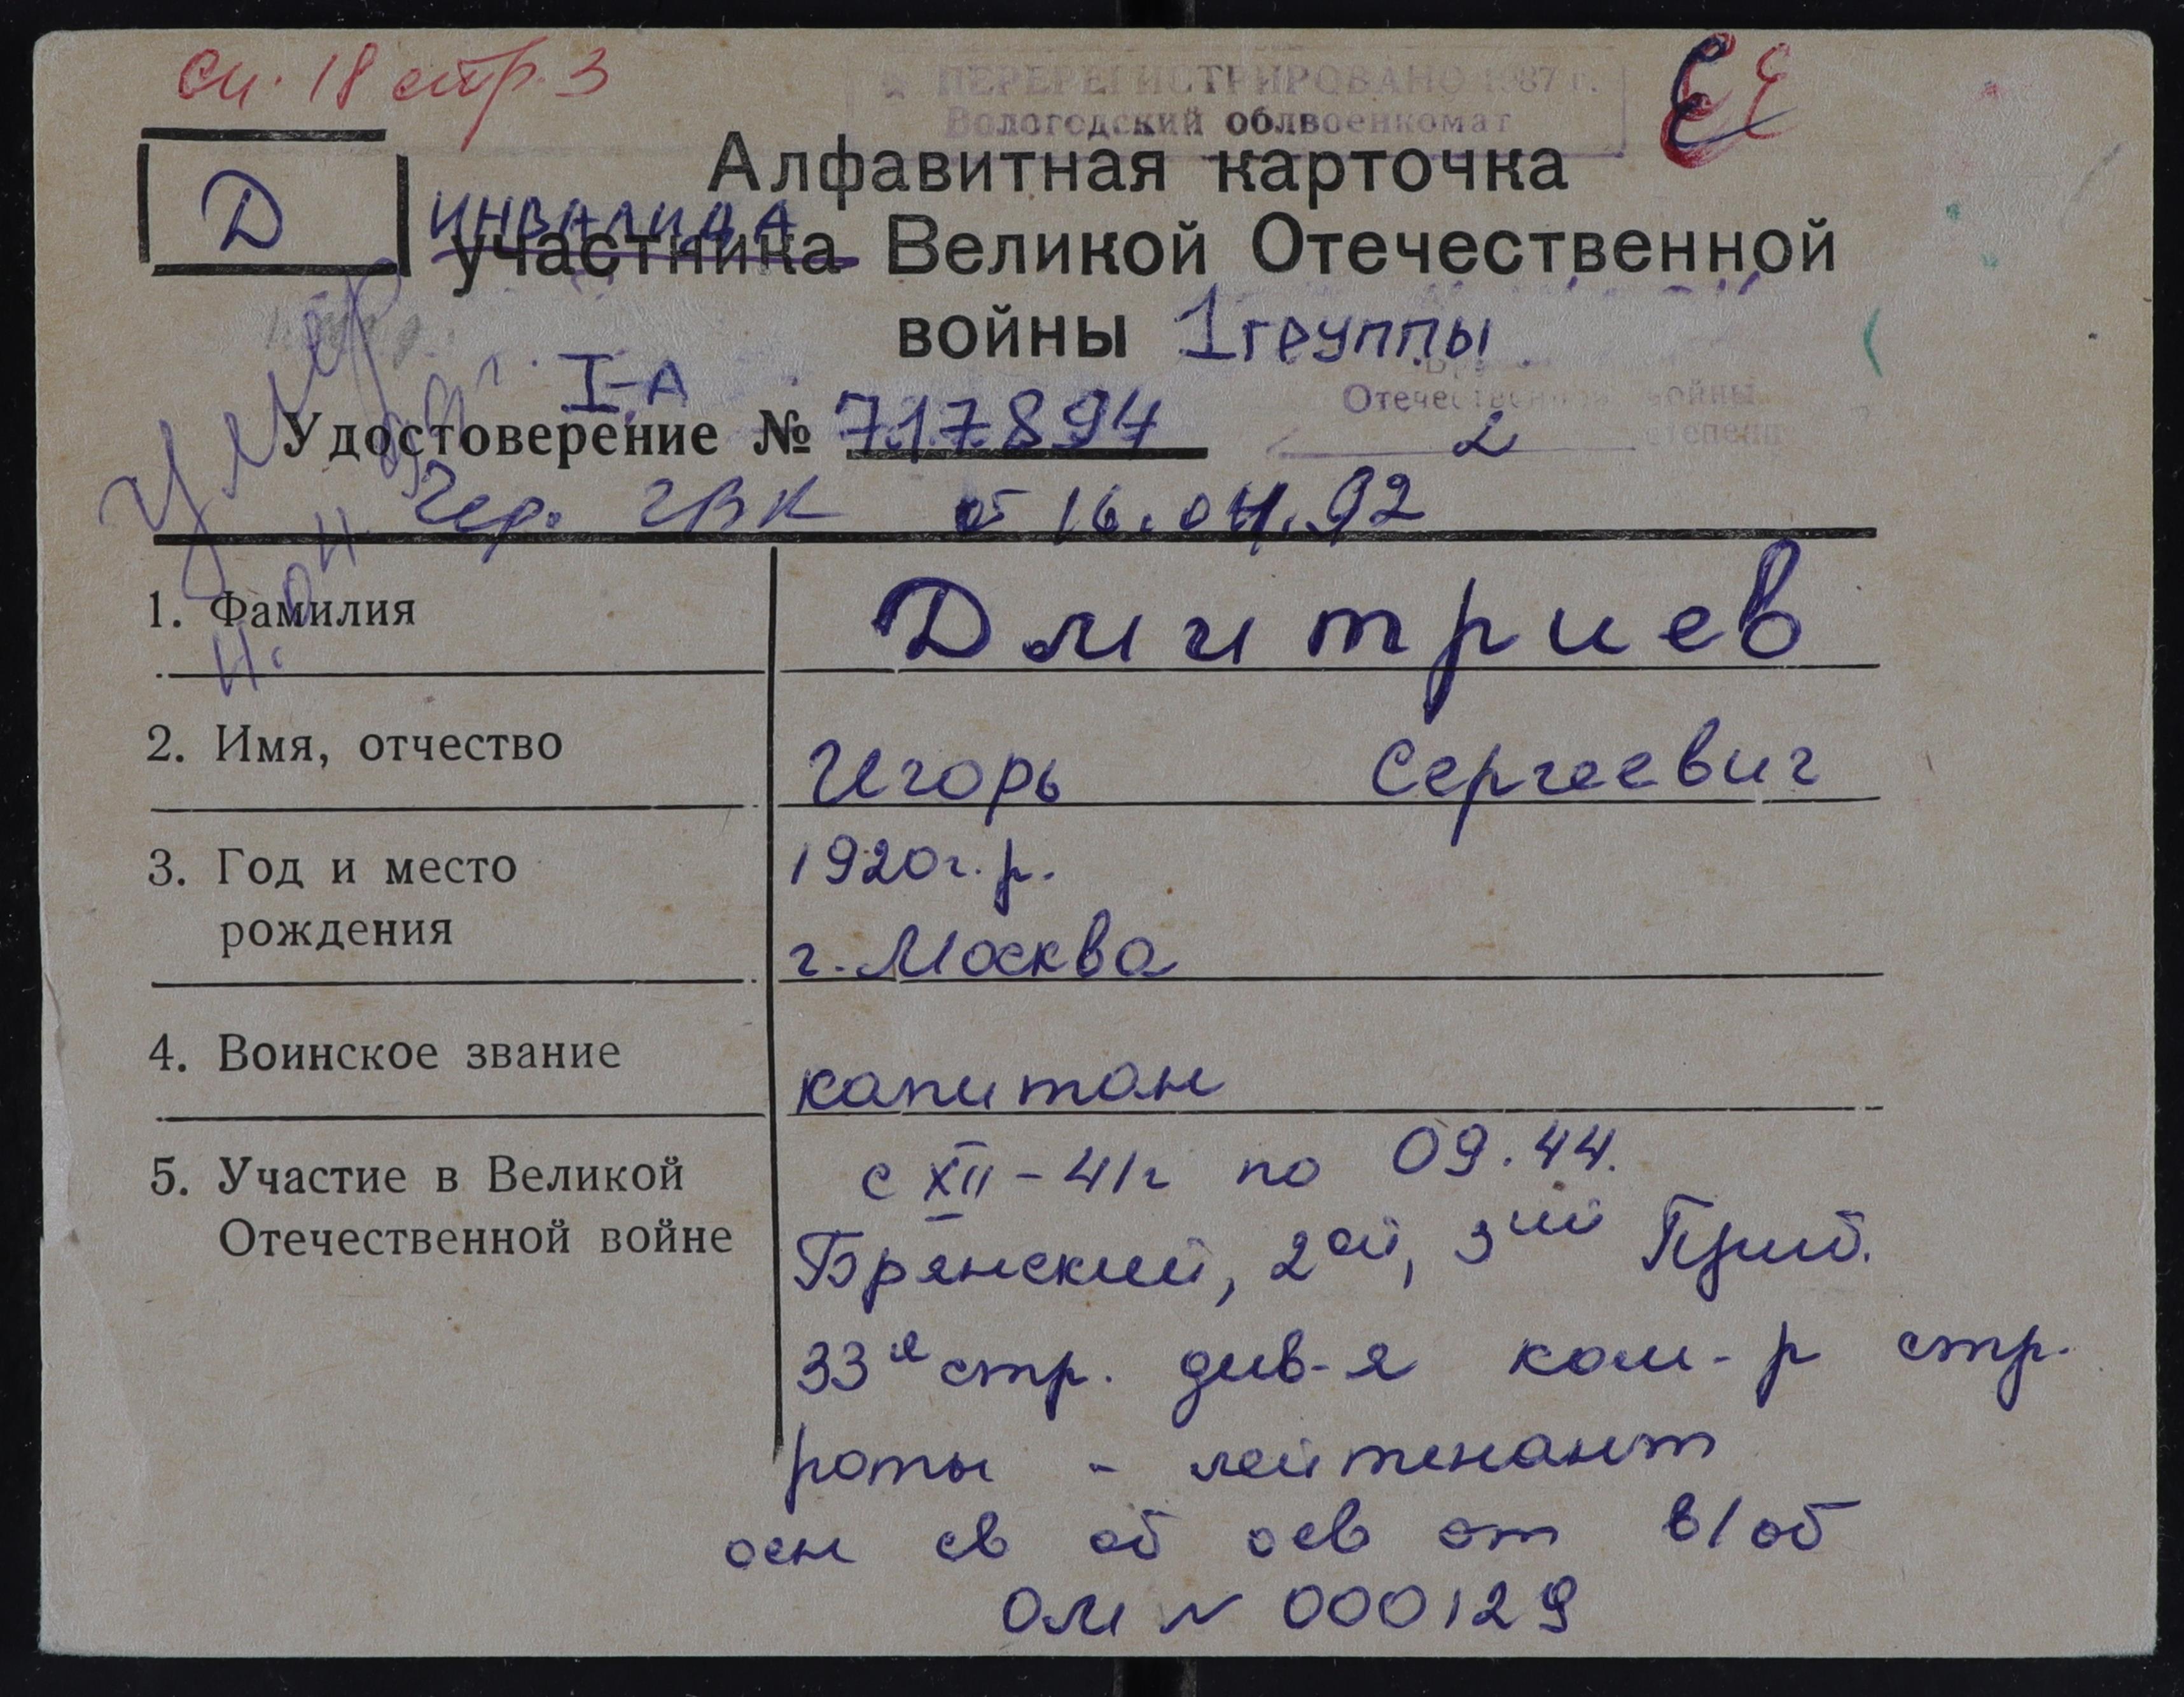 сп. 18 стр. 3
ПЕРЕРЕГИСТРИРОВАНО 1987 г.
Вологодский облвоенкомат
Д
Алфавитная карточка
ИНВАЛИДА
участника Великой Отечественной
войны 1 группы
умер
I-А
Отечественной войны
2 степени
Удостоверение № 717894
Чер. ГВК от 16.04.92
1. Фамилия Дмитриев
2. Имя, отчество Игорь Сергеевич
3. Год и место 1920 г. р.
рождения г. Москва
4. Воинское звание капитан
5. Участие в Великой с XII-41г по 09.44.
Отечественной войне Брянский, 2ой, 3ий Приб.
33я стр. див-я ком-р стр.
роты - лейтенант
осн св об осв от в/об
ОМ № 000129